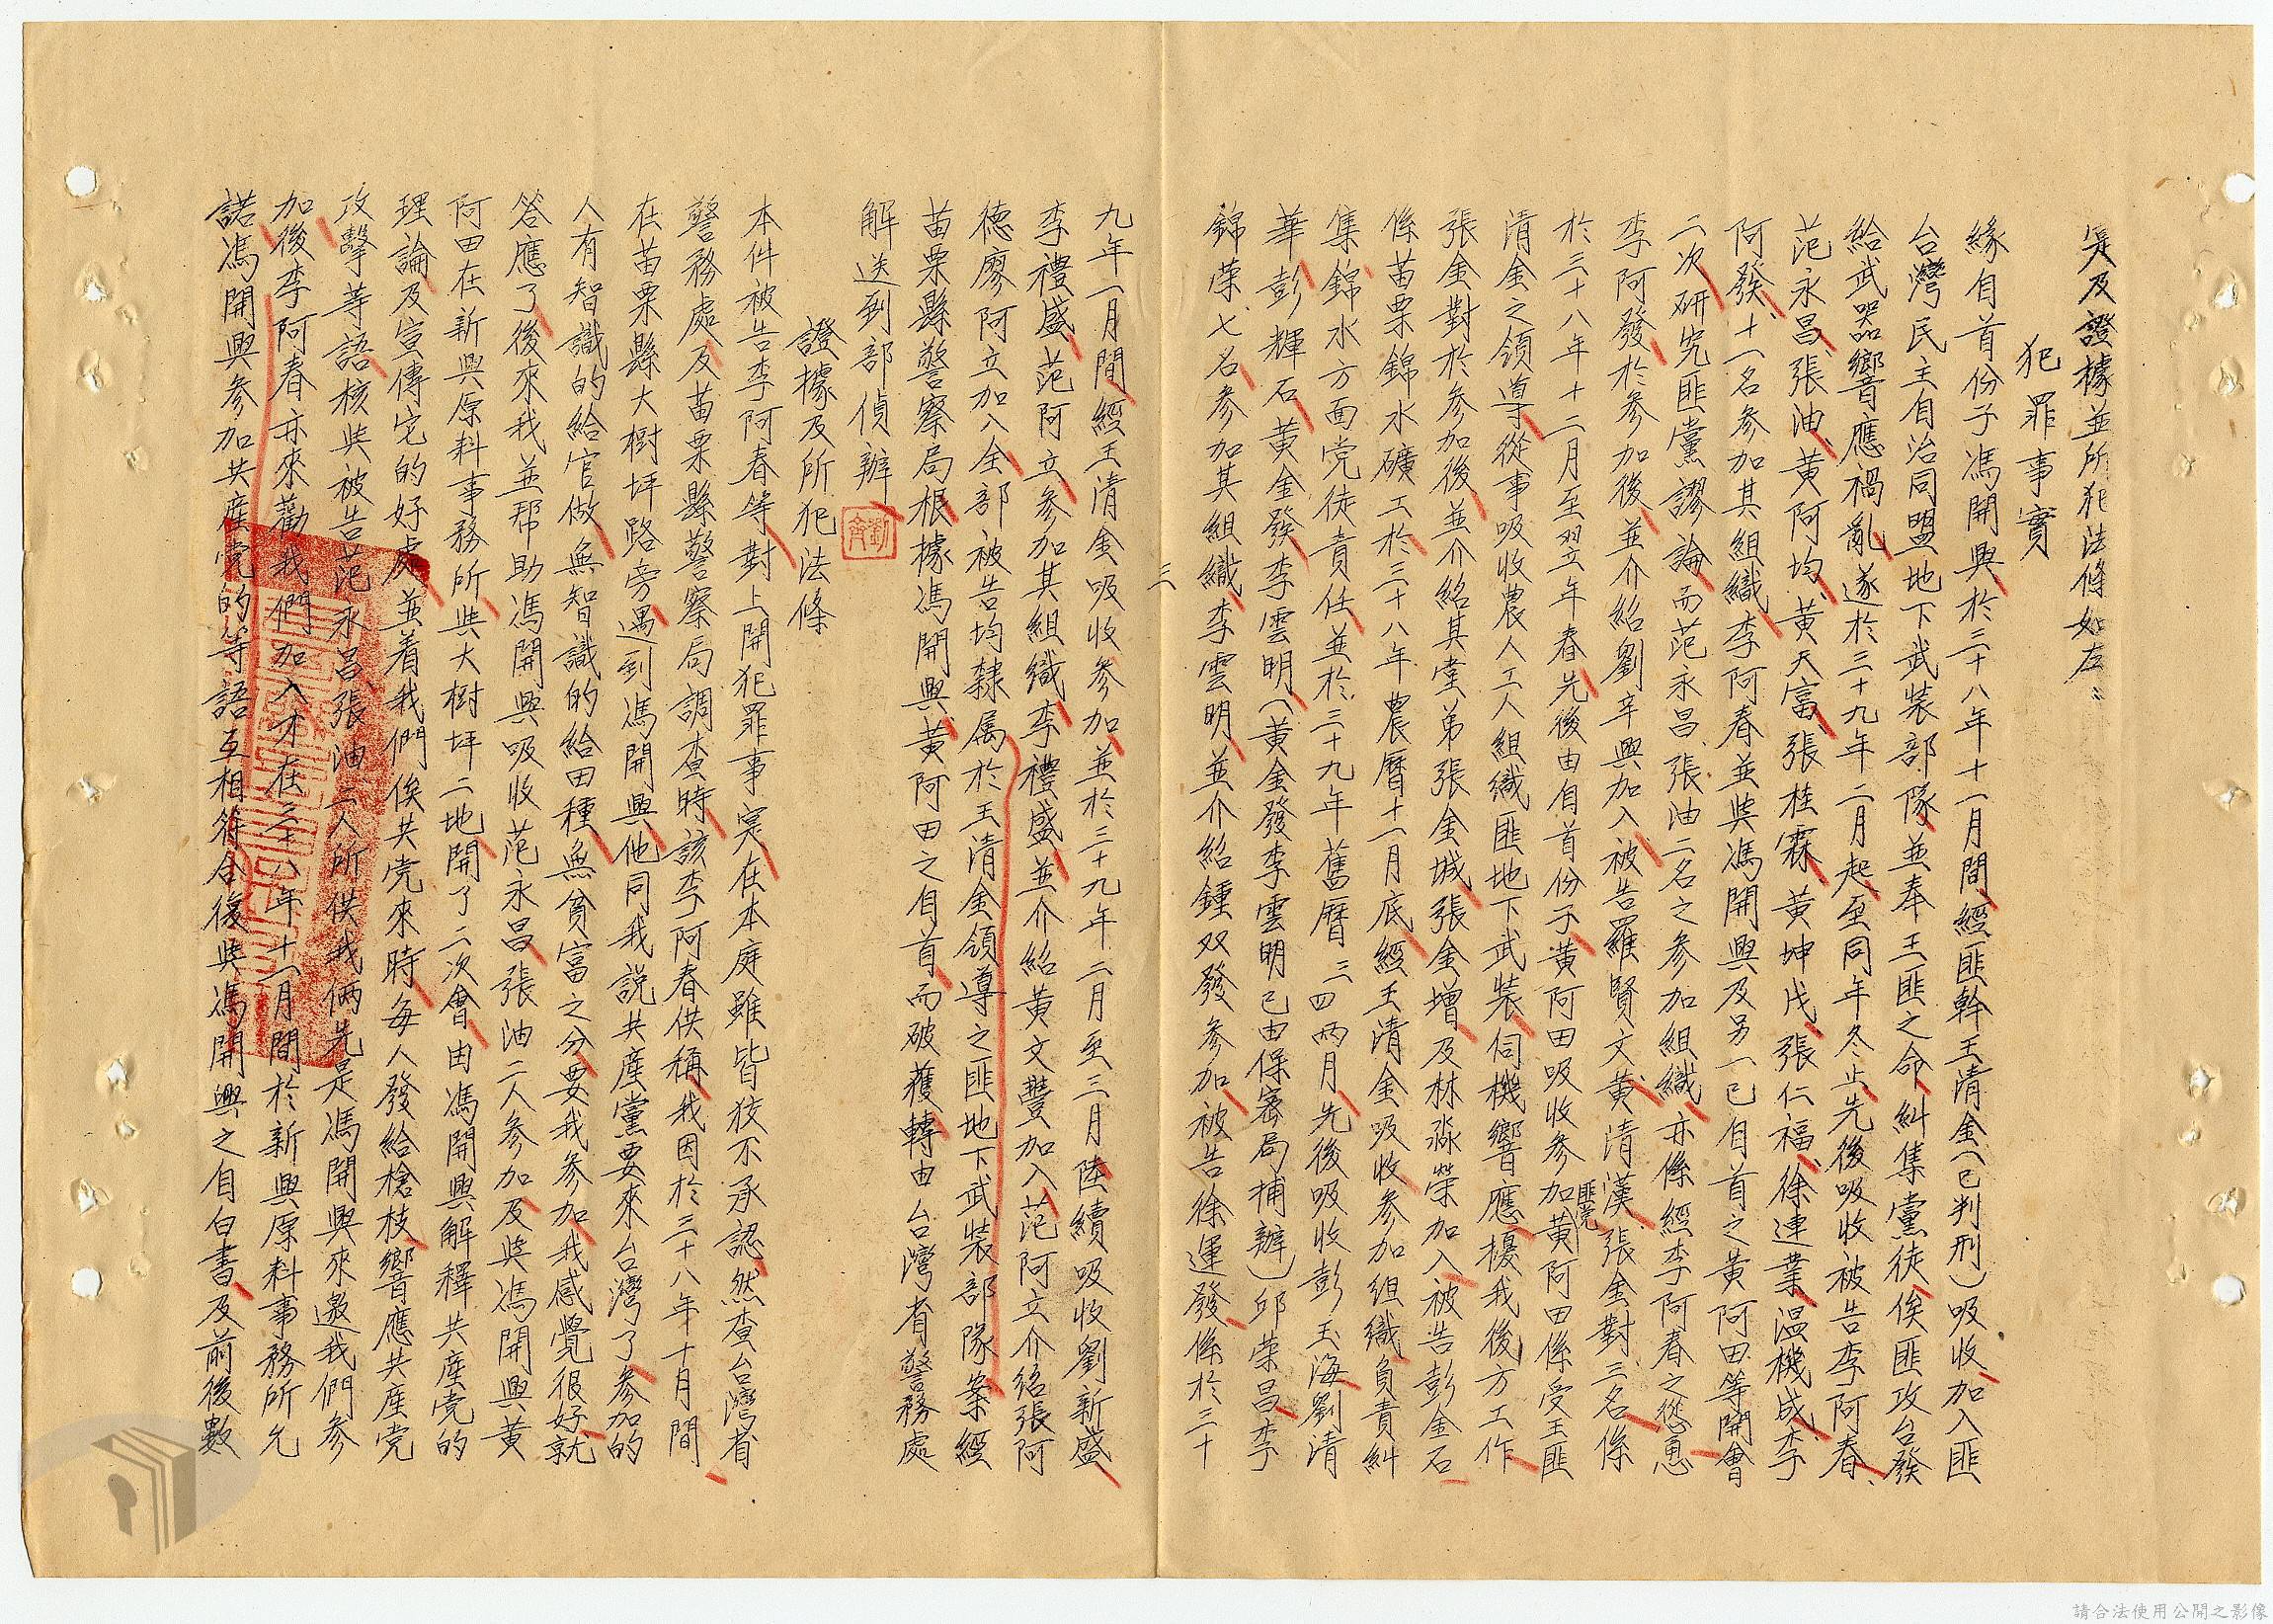 吳及證據並所犯法條如左：
犯罪事實
緣自首份子馮開興於三十八年十一月間經匪幹王清金（已判刑）吸收加入匪
台灣民主自治同盟地下武裝部隊並奉王匪之命糾集黨徒俟匪攻台發
給武器響應禍亂遂於三十九年二月起至同年冬止先後吸收被告李阿春、
范永昌、張油、黃阿均、黃天富、張桂霖、黃坤戊、張仁福、徐連業、温機成、李
阿發、十一名參加其組織李阿春並與馮開興及另一已自首之黃阿田等開會
二次研究匪黨謬論而范永昌、張油二名之參加組織亦係經李阿春之慫恿
李阿發於參加後並介紹劉辛興加入被告羅賢文、黃清漢、張金對三名係
於三十八年十二月至翌年春先後由自首份子黃阿田吸收參加匪党黃阿田係受王匪
清金之領導從事吸收農人工人組織匪地下武裝伺機響應擾我後方工作
張金對於參加後並介紹其堂弟張金城、張金增及林添榮加入被告彭金石
係苗栗錦水礦工於三十八年農曆十一月底經王清金吸收參加組織負責糾
集錦水方面党徒責任並於三十九年舊曆三四兩月先後吸收彭玉海、劉清
華、彭輝石、黃金發、李雲明（黃金發李雲明已由保密局捕辦）邱榮昌、李
錦榮、七名參加其組織李雲明並介紹鍾双發參加被告徐運發係於三十
三
九年一月間經王清金吸收參加並於三十九年二月至三月陸續吸收劉新盛
李禮盛、范阿立參加其組織李禮盛並介紹黃文豐加入范阿立介紹張阿
德廖阿立加入全部被告均隸属於王清金領導之匪地下武裝部隊案經
苗栗縣警察局根據馮開興、黃阿田之自首而破獲轉由台灣省警務處
解送到部偵辦
證據及所犯法條
本件被告李阿春等對上開犯罪事實在本庭雖皆狡不承認然查台灣省
警務處及苗栗縣警察局調查時該李阿春供稱我因於三十八年十月間、
在苗栗縣大樹坪路旁遇到馮開興他同我説共產黨要來台灣了參加的
人有智識的給官做無智識的給田種無貧富之分要我參加我感覺很好就
答應了後來我並帮助馮開興吸收范永昌、張油二人參加及與馮開興黃
阿田在新興原料事務所與大樹坪二地開了二次會由馮開興解釋共産党的
理論及宣傳它的好處並着我們俟共党來時每人發給槍枝響應共産党
攻擊等語核與被告范永昌、張油二人所供我俩先是馮開興來邀我們參
加後李阿春亦來勸我們加入才在三十八年十一月間於新興原料事務所允
諾馮開興參加共産党的等語互相符合復與馮開興之自白書及前後數
劉
請合法使用公開之影像